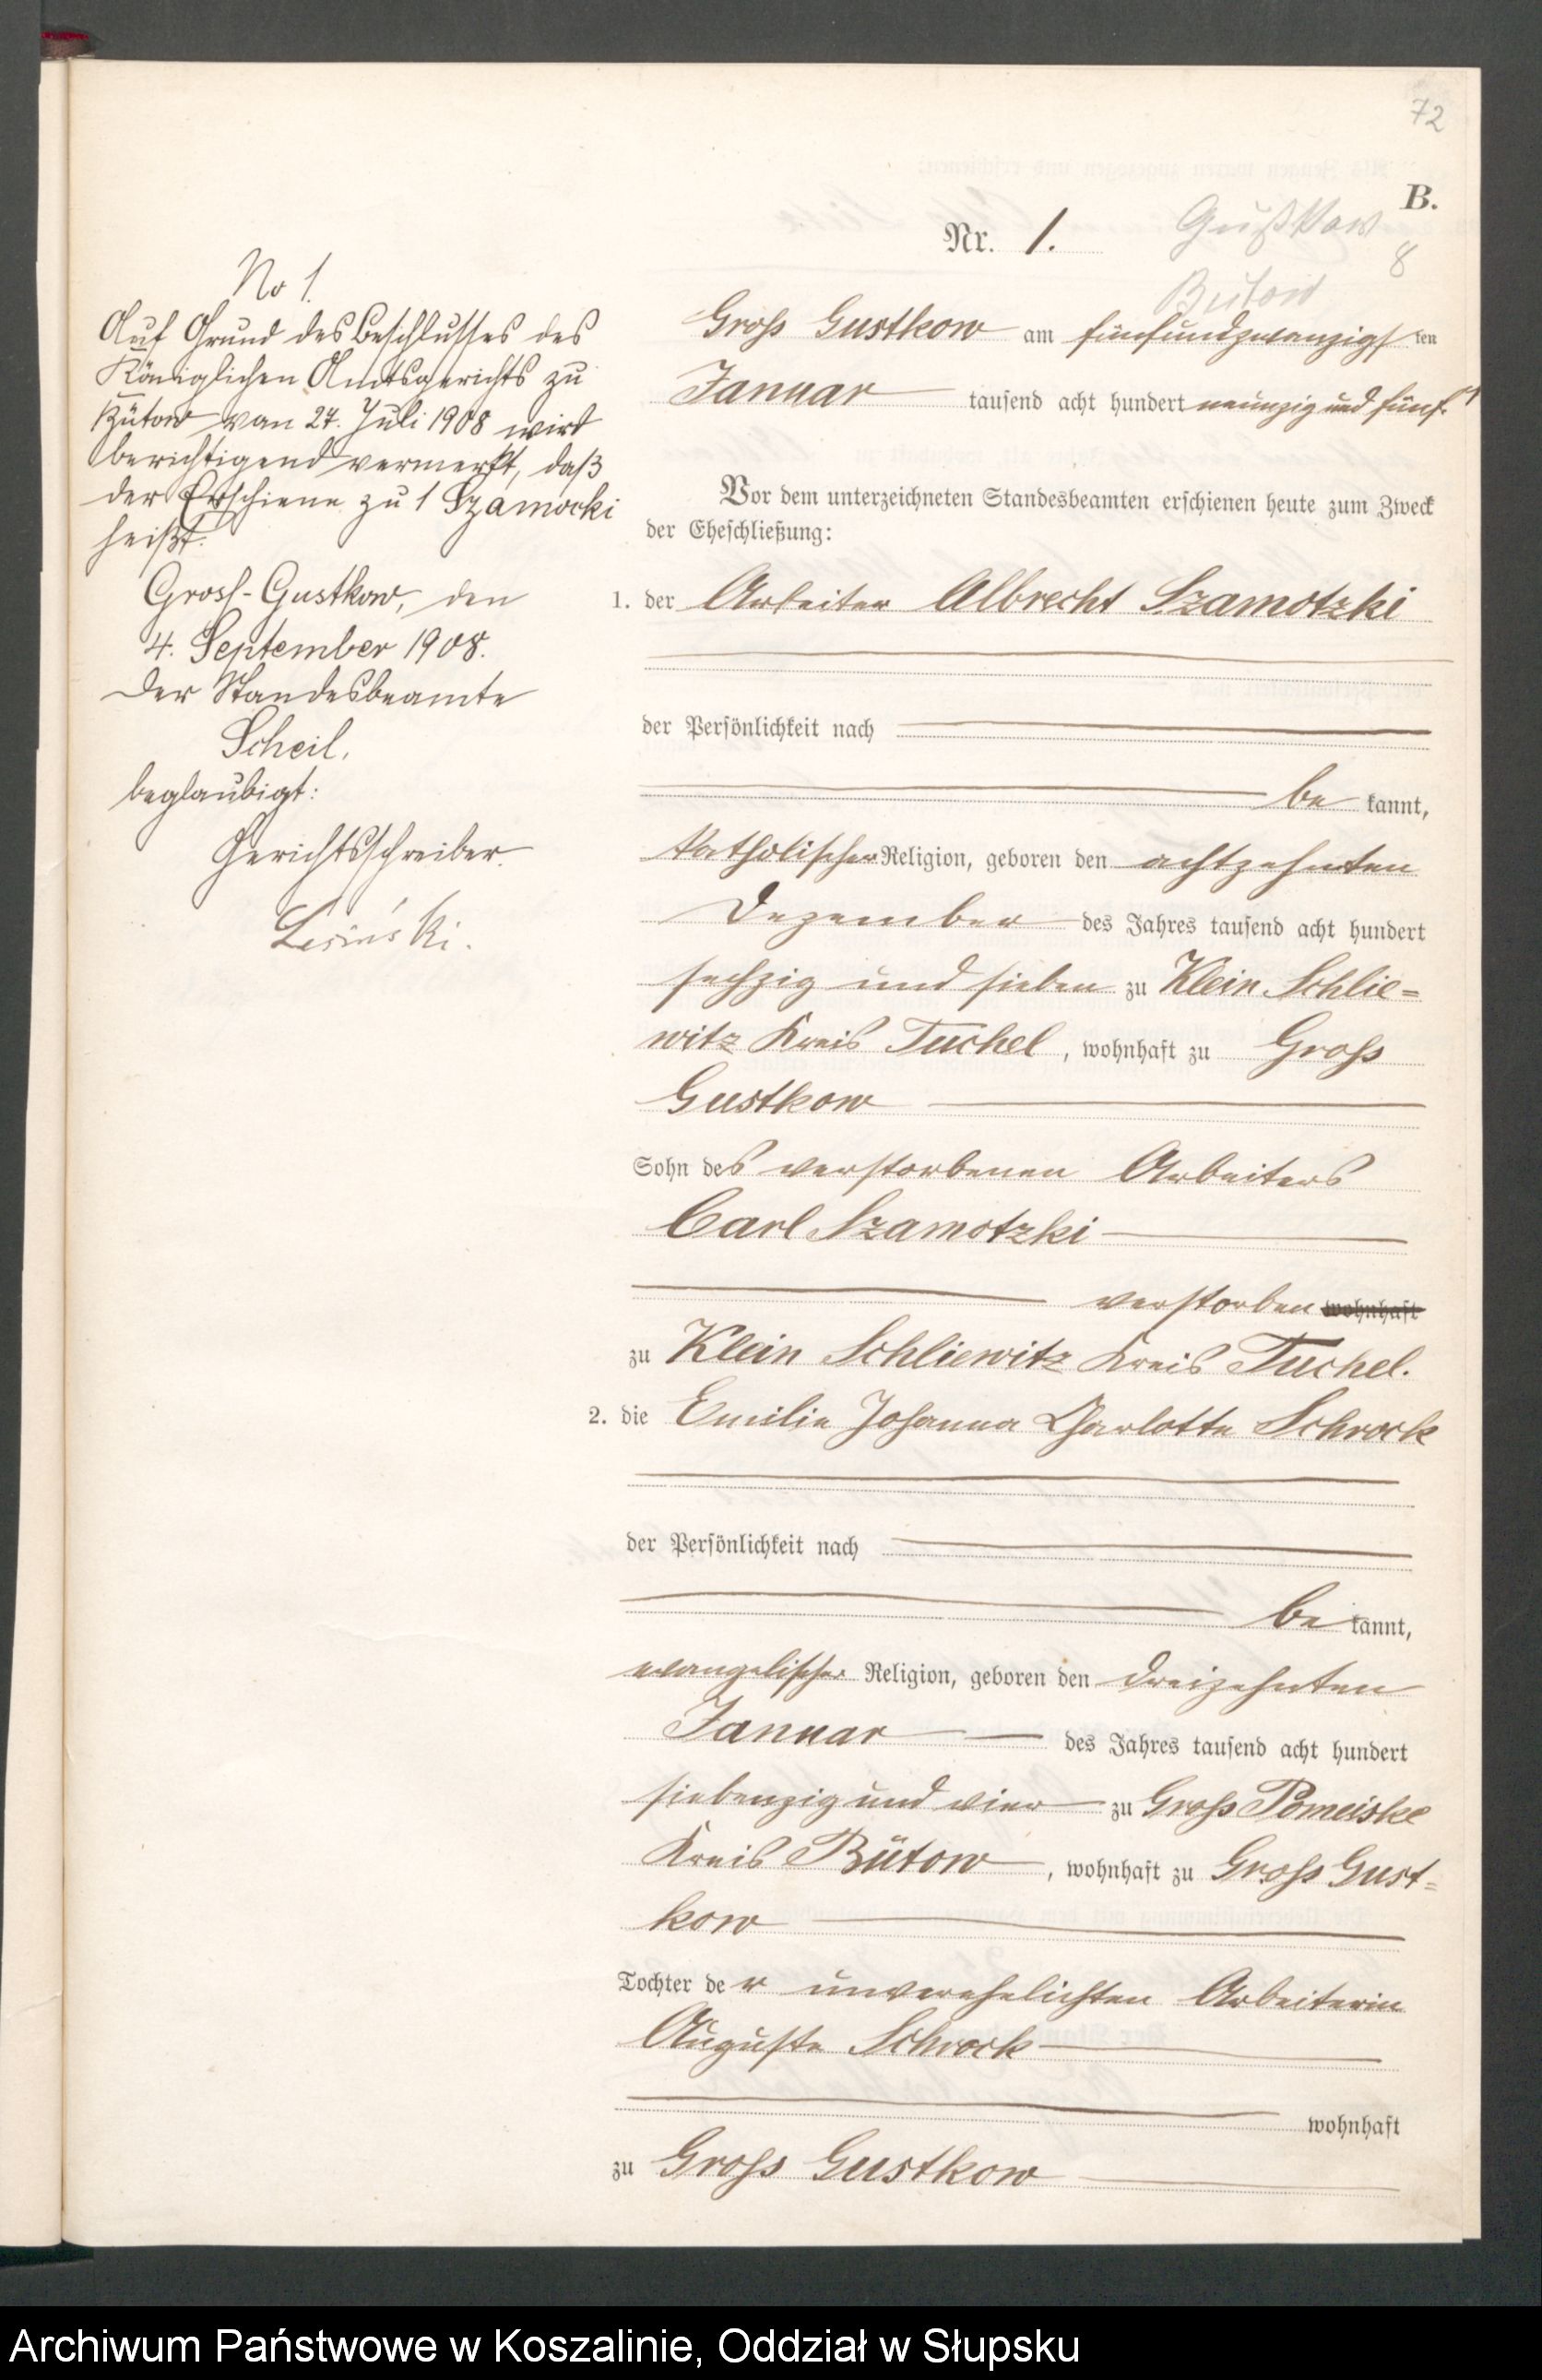 72
B.
Gustkow
8
Bütow
Nr. 1.
Groß Gustkow am fünfundzwanzigsten
Januar tausend acht hundert neunzig und fünf
Vor dem unterzeichneten Standesbeamten erschienen heute zum Zweck
der Eheschließung:
1. der Arbeiter Albrecht Szamotzki
der Persönlichkeit nach
be kannt,
katholischer Religion, geboren den achtzehnten
Dezember des Jahres tausend acht hundert
sechzig und sieben zu Klein Schlie=
witz Kreis Tuchel, wohnhaft zu Groß
Gustkow
Sohn des verstorbenen Arbeiters
Carl Szamotzki
verstorben wohnhaft
zu Klein Schliewitz Kreis Tuchel.
2. die Emilie Johanna Charlotte Schrock
der Persönlichkeit nach
be kannt,
evangelischer Religion, geboren den dreizehnten
Januar des Jahres tausend acht hundert
siebenzig und vier zu Groß Pomeiske
Kreis Bütow, wohnhaft zu Groß Gust=
kow
Tochter der unverehelichten Arbeiterin
Auguste Schrock
wohnhaft
zu Groß Gustkow
No 1.
Auf Grund des Beschlusses des
Königlichen Amtsgerichts zu
Bütow vom 27. Juli 1908 wird
berichtigend vermerkt, daß
der Erschienene zu 1 Szamocki
heißt.
Gross-Gustkow, den
4. September 1908.
Der Standesbeamte
Scheil.
beglaubigt:
Gerichtsschreiber.
Lesiński.
Archiwum Państwowe w Koszalinie, Oddział w Słupsku